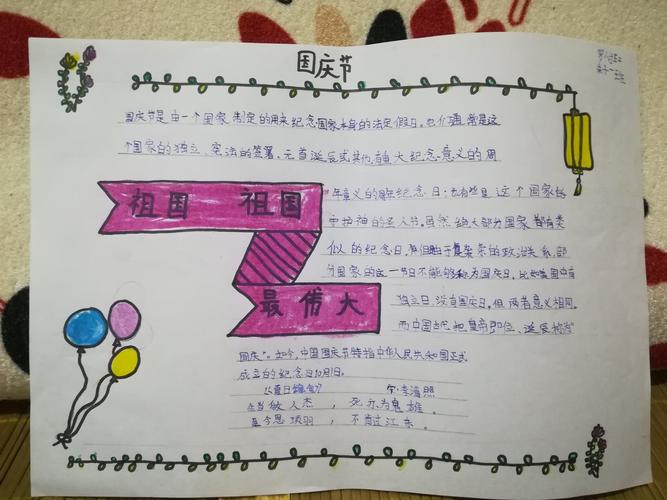 国庆节
国庆节是由一个国家制定的用来纪念国家本身的法定假日。他们通常是这
个国家的独立、宪法的签署、元首诞辰或其他有重大纪念意义的周
祖国 祖国
最伟大
年意义的周年纪念日;也有些是这个国家的
守护神的圣人节。虽然绝大部分国家都有类
似的纪念日,但由于复杂的政治关系,部
分国家的这一节日不能够称为国庆日,比如美国只有
独立日没有国庆日,但两者意义相同。
而中国古代把皇帝即位、诞辰称为
国庆”。如今,中国国庆节特指中华人民共和国正式
成立的纪念日10月1日。
《夏日绝句》 李清照
生当做人杰 , 死亦为鬼雄。
至今思项羽 , 不肯过江东。